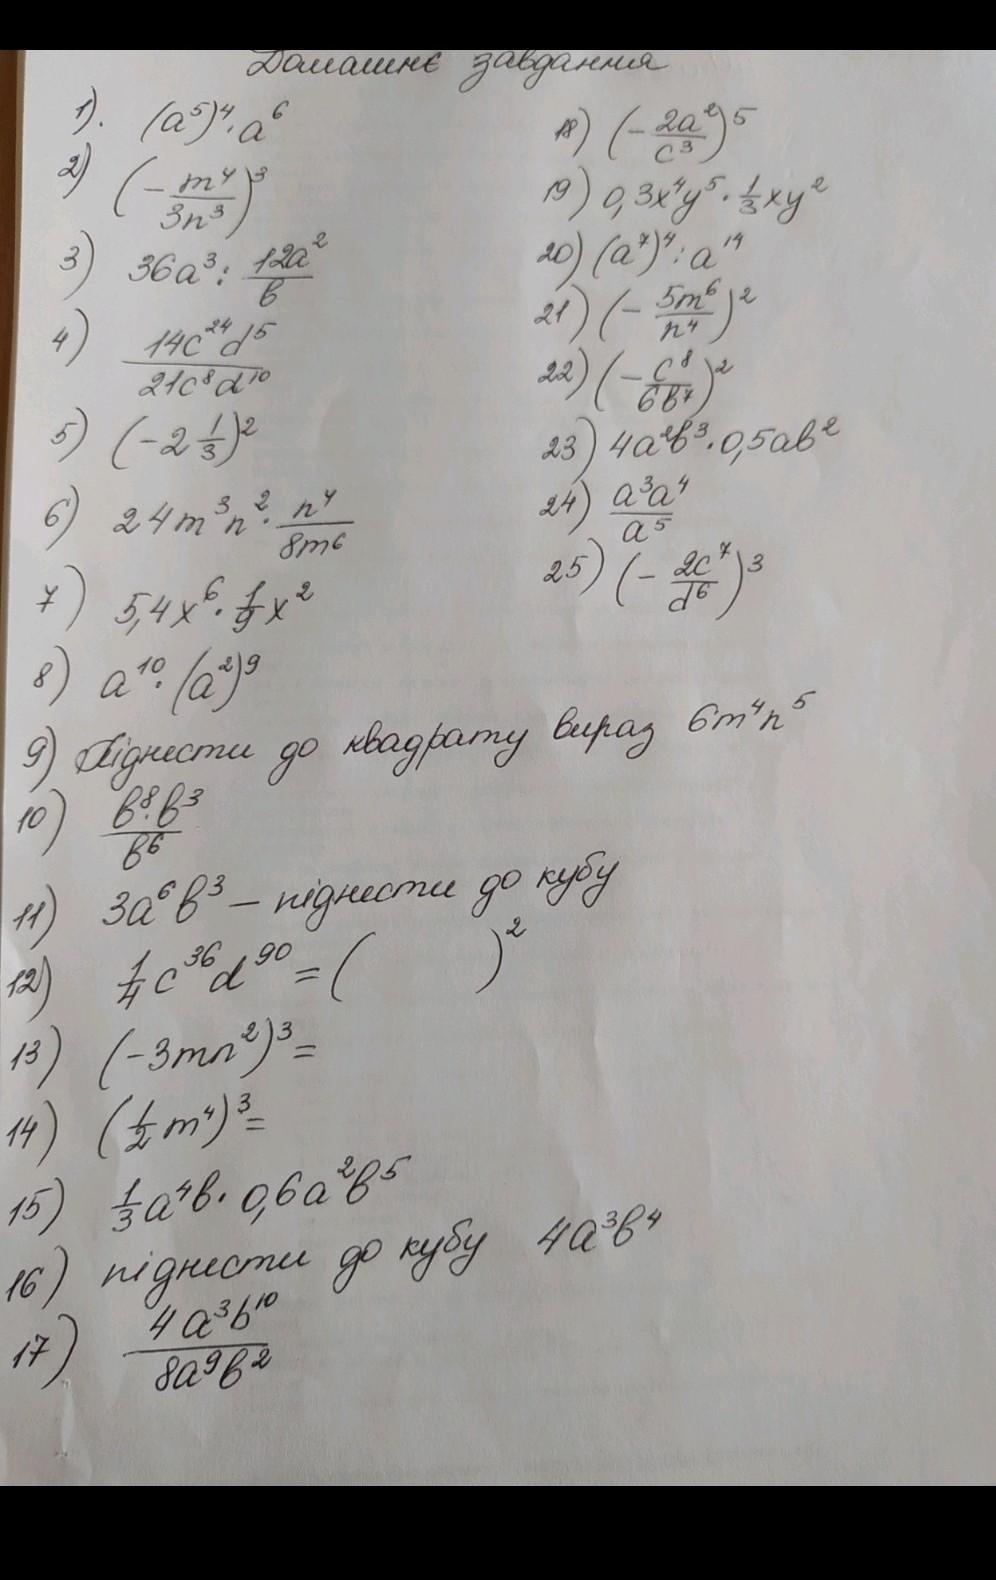 Домашнє завдання
1). (a⁵)⁴·a⁶
2) (-m⁴/3n³)³
3) 36a³ : 12a²/b
4) 14c²⁴d⁵/21c⁸d¹⁰
5) (-2 1/3)²
6) 24m³n²·n⁴/8m⁶
7) 5,4x⁶·1/9x²
8) a¹⁰·(a²)⁹
9) Піднести до квадрату вираз 6m⁴n⁵
10) b⁸·b³/b⁶
11) 3a⁶b³ – піднести до кубу
12) 1/4c³⁶d⁹⁰ = ( )²
13) (-3mn²)³=
14) (1/2m⁴)³=
15) 1/3a⁴b·0,6a²b⁵
16) піднести до кубу 4a³b⁴
17) 4a³b¹⁰/8a⁹b²
18) (-2a²/c³)⁵
19) 0,3x⁴y⁵·1/3xy²
20) (a⁷)⁴:a¹⁴
21) (-5m⁶/n⁴)²
22) (-c⁸/6b⁷)²
23) 4a²b³·0,5ab²
24) a³a⁴/a⁵
25) (-2c⁷/d⁶)³